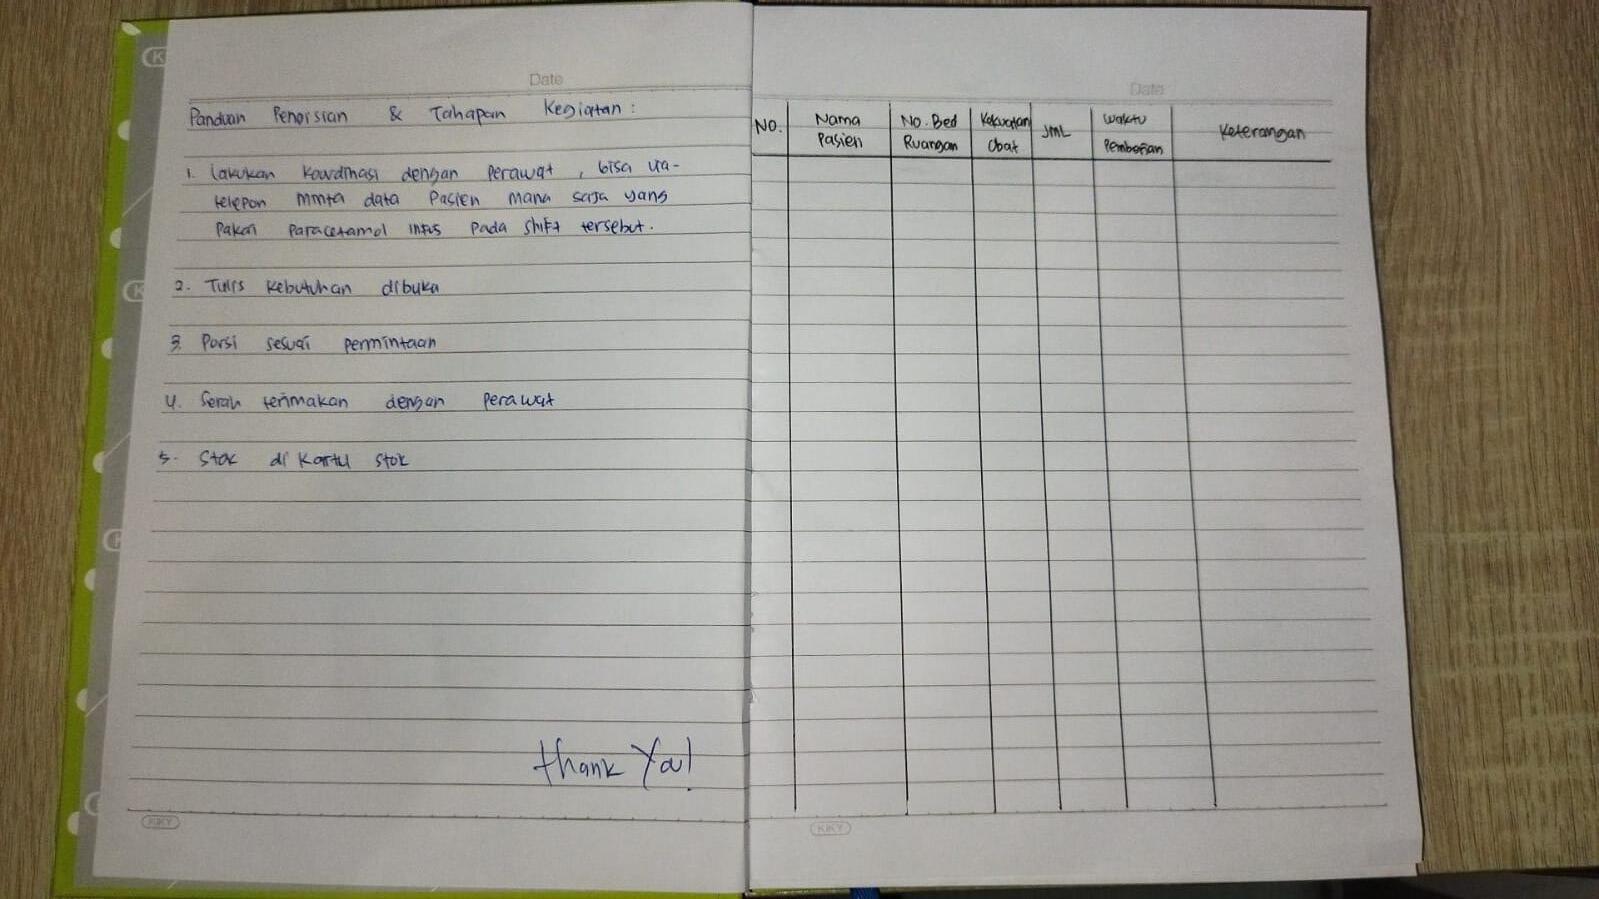 Date
Panduan Pengisian & Tahapan Kegiatan :
1. Lakukan koordinasi dengan perawat , bisa via-
telepon minta data Pasien mana saja yang
Pakai Paracetamol infus pada shift tersebut.
2. Tulis kebutuhan dibuka
3. Porsi sesuai permintaan
4. Serah terimakan dengan perawat
5. Stok di kartu stok
Thank You!
KIKY
Date
NO.
Nama
Pasien
No. Bed
Ruangan
Kekuatan
Obat
JML
Waktu
Pemberian
Keterangan
KIKY